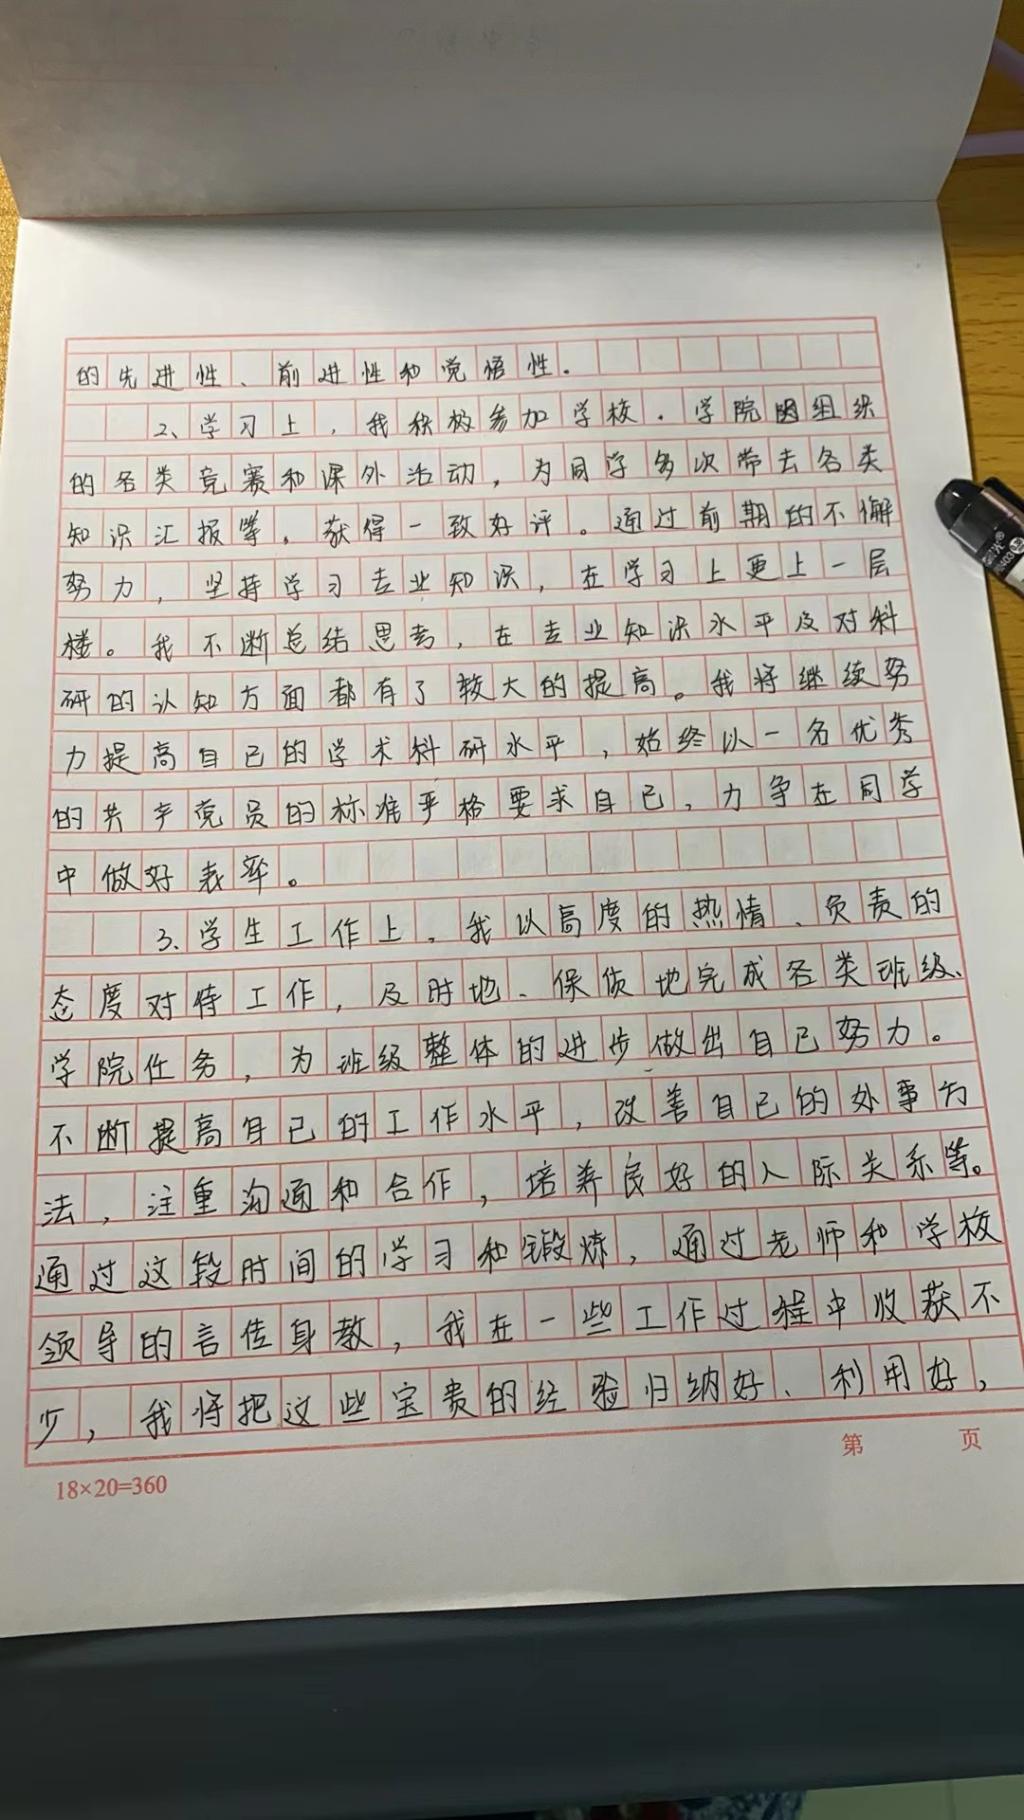 的先进性、前进性和党悟性。
2、学习上，我积极参加学校、学院因组织
的各类竞赛和课外活动，为同学多次带去各类
知识汇报等，获得一致好评。通过前期的不懈
努力，坚持学习专业知识，在学习上更上一层
楼。我不断总结思考，在专业知识水平及对科
研的认知方面都有了较大的提高。我将继续努
力提高自己的学术科研水平，始终以一名优秀
的共产党员的标准严格要求自己，力争在同学
中做好表率。
3、学生工作上，我以高度的热情、负责的
态度对待工作，及时地、保质地完成各类班级、
学院任务，为班级整体的进步做出自己努力。
不断提高自己的工作水平，改善自己的处事方
法，注重沟通和合作，培养良好的人际关系等。
通过这段时间的学习和锻炼，通过老师和学校
领导的言传身教，我在一些工作过程中收获不
少，我将把这些宝贵的经验归纳好、利用好，
第 页
18×20=360